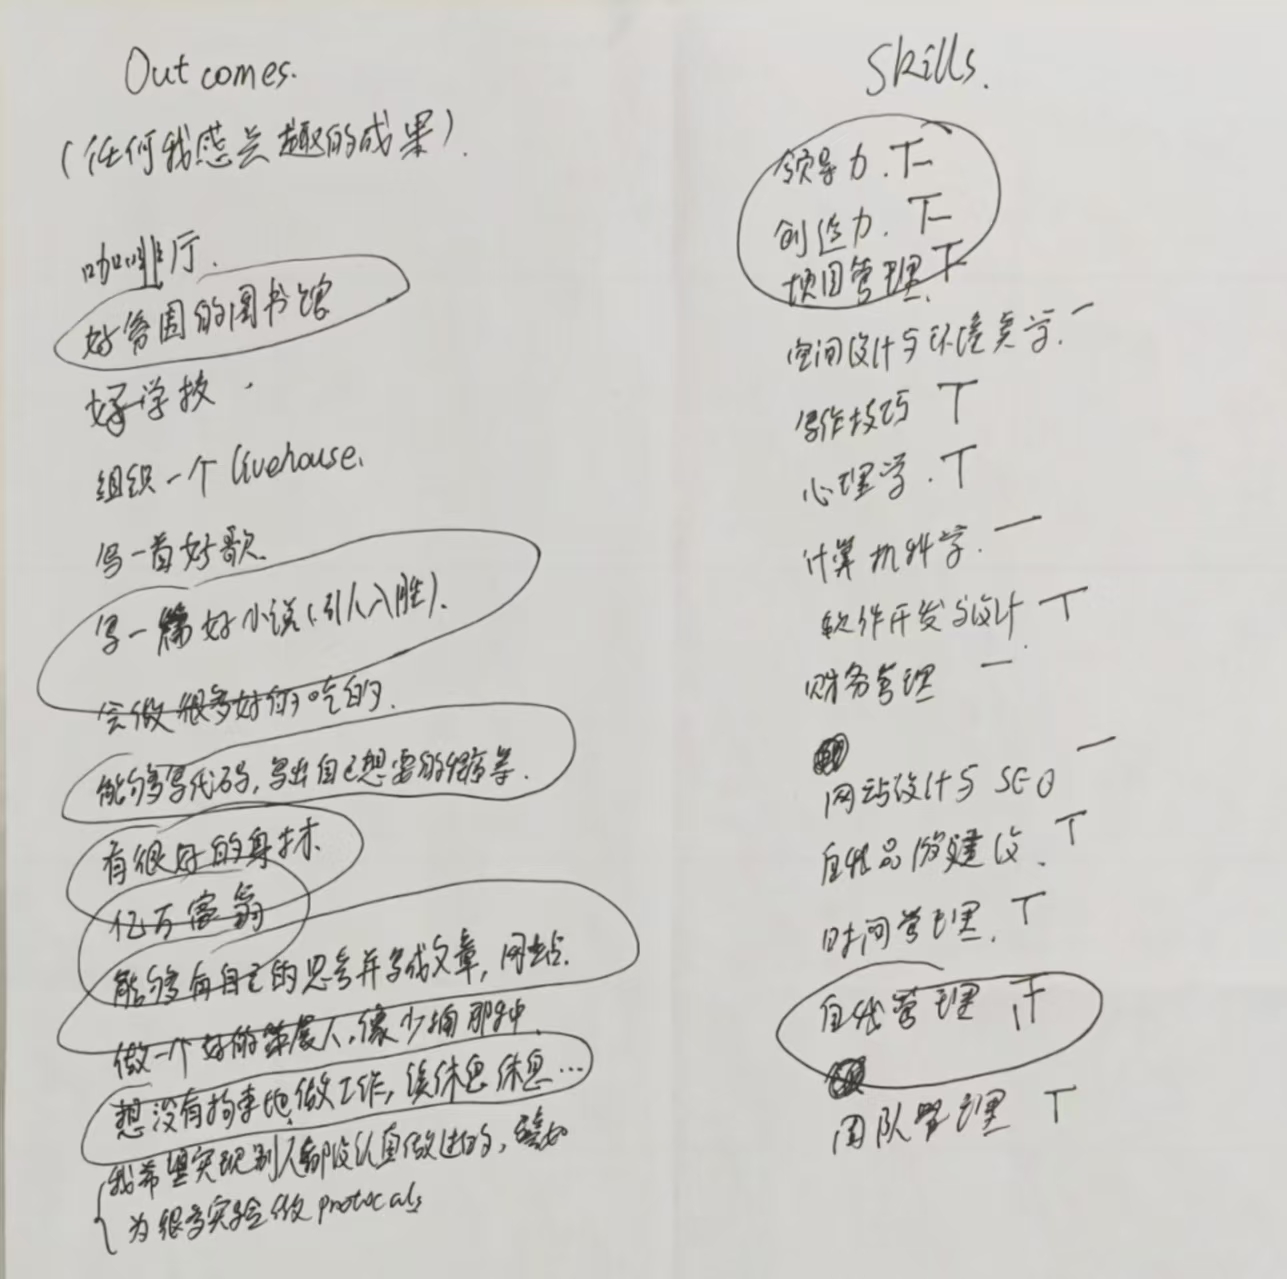 Outcomes.
(任何我感兴趣的成果).
咖啡厅.
好氛围的图书馆
好学校.
组织一个livehouse.
写一首好歌.
写一篇好小说(引人入胜).
会做很多好的吃的.
能够写代码,写出自己想要的程序等.
有很好的身材.
亿万富翁
能够有自己的思考并写成文章,网站.
做一个好的策展人,像少楠那种.
想没有拘束地做工作,误休息休息…
我希望实现别人都没认真做过的,譬如
为很多实验做protocals
Skills.
领导力.
创造力.
项目管理.
空间设计与环境美学.
写作技巧
心理学.
计算机科学.
软件开发与设计.
财务管理
网站设计与SEO
自我品牌建设.
时间管理.
自我管理
团队管理